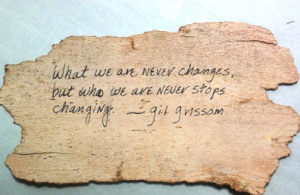 What we are NEVER changes,
but who we are NEVER stops
changing. — gil grissom